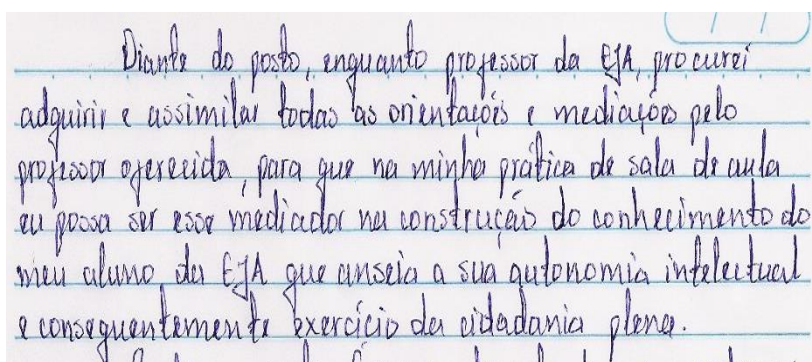 Diante do posto, enquanto professor da EJA, procurei
adquirir e assimilar todas as orientações e mediações pelo
professor oferecida, para que na minha prática de sala de aula
eu possa ser esse mediador na construção do conhecimento do
meu aluno da EJA que anseia a sua autonomia intelectual
e consequentemente exercício da cidadania plena.